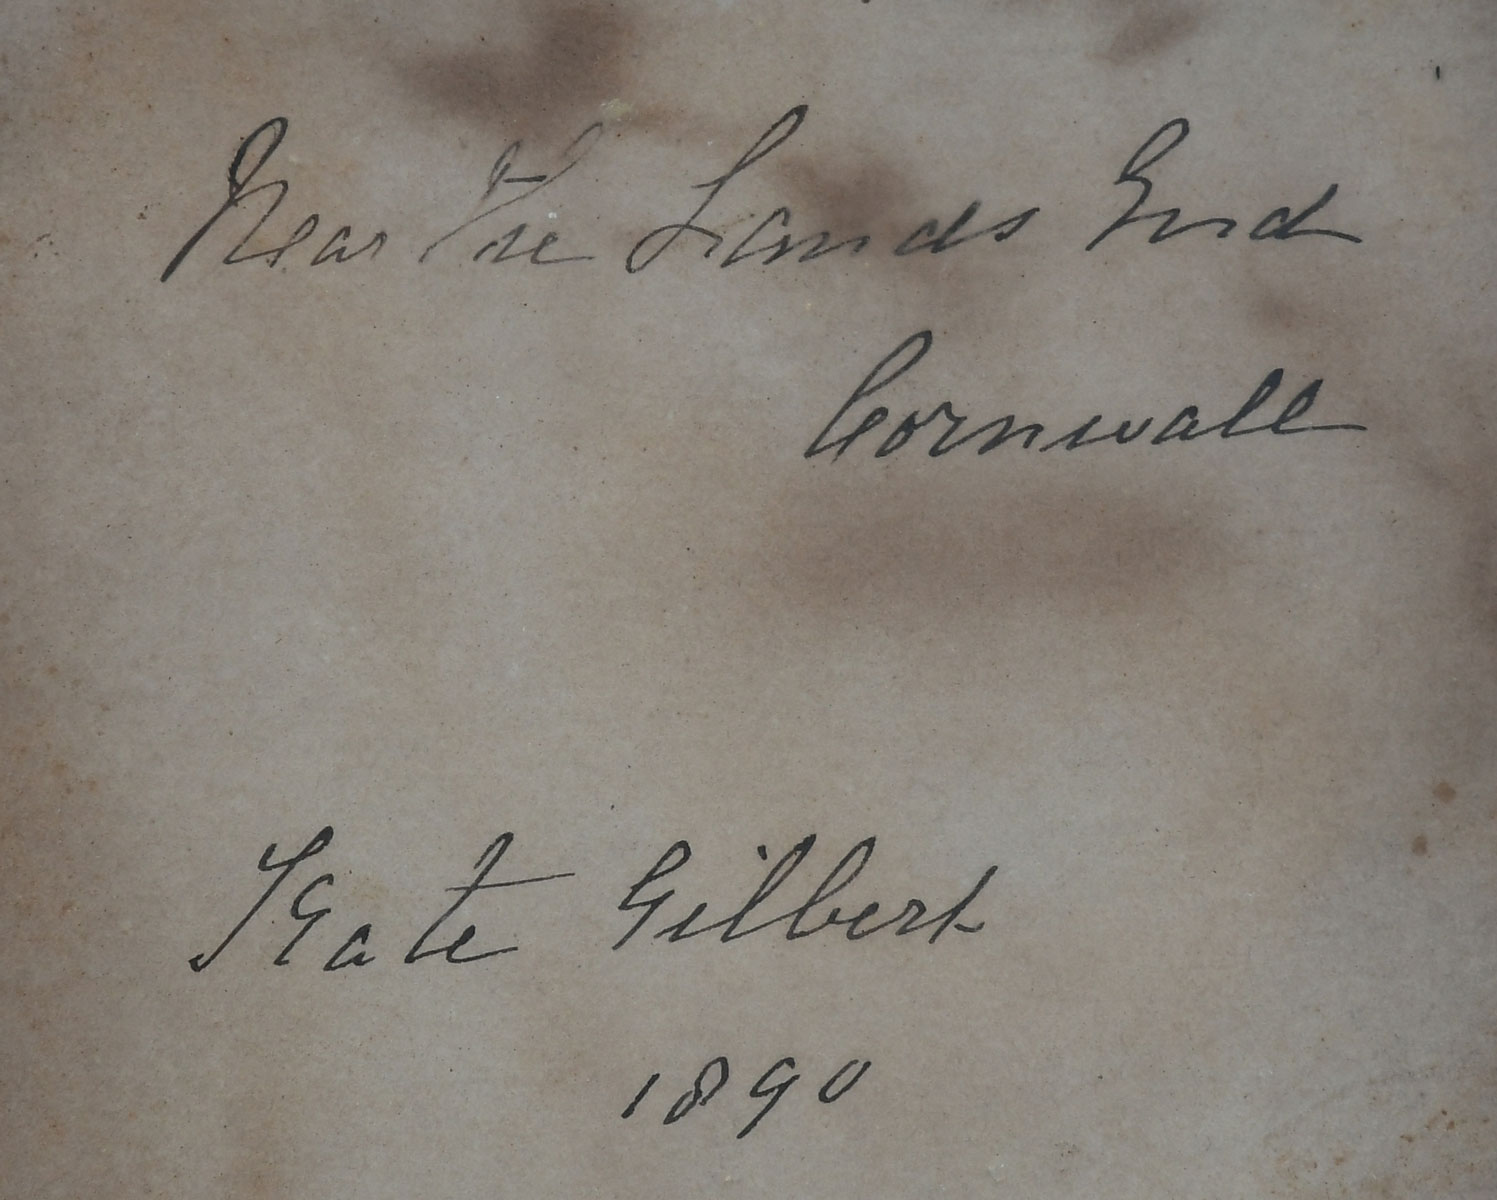 Near The Lands End
Cornwall
Kate Gilbert
1890